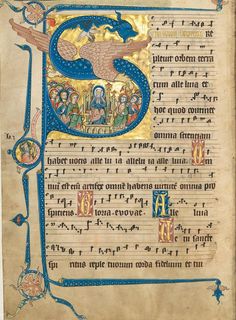 S RE
pleuit orbem terra
rum alle luia et
hoc quod continet
omnia scientiam
habet uocis alle luia alleluia alle luia. O
nium est eni artifex omne habens uirtute omnia pro
spiciens Gloria. evovae. Alle luia
Veni sancte
spi ritus reple tuorum corda fidelium et tui